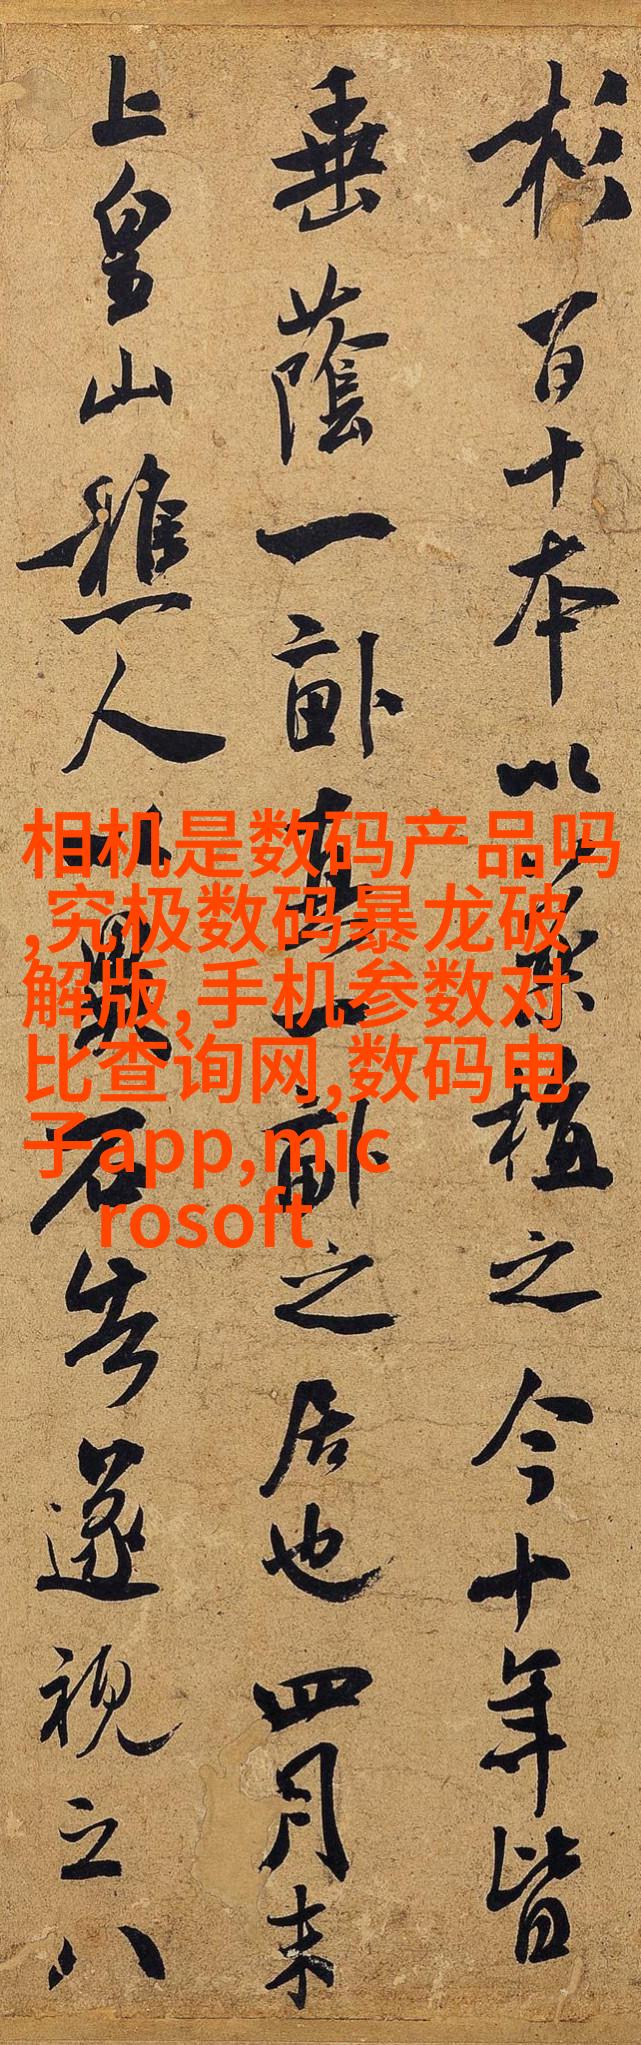 杉百十本以植之今十年皆
垂蔭一畝真一畝之居也四月末
上皇山樵人以異石告遂視之八
相机是数码产品吗
,究极数码暴龙破
解版,手机参数对
比查询网,数码电
子app,mic
rosoft